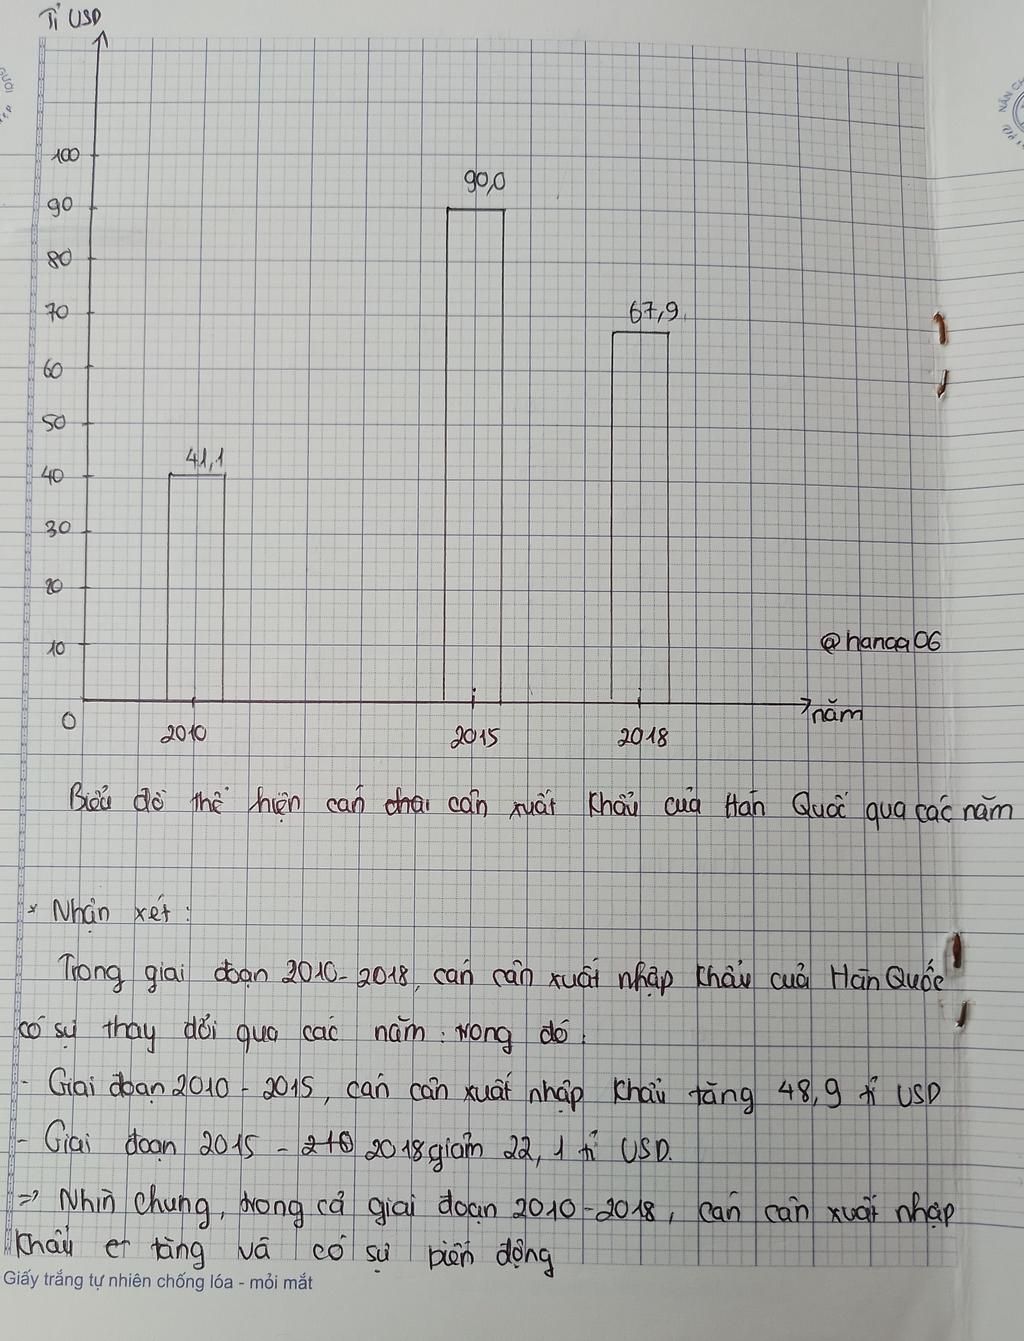 Tỉ USD
100
90,0
90
80
70
67,9
60
50
41,1
40
30
20
10
@hangg06
0
năm
2010
2015
2018
Biểu đồ thể hiện cán cân xuất khẩu của Hàn Quốc qua các năm
* Nhận xét:
Trong giai đoạn 2010-2018, cán cân xuất nhập khẩu của Hàn Quốc
có sự thay đổi qua các năm. trong đó:
- Giai đoạn 2010 - 2015, cán cân xuất nhập khẩu tăng 48,9 tỉ USD
- Giai đoạn 2015 - 2018 giảm 22,1 tỉ USD.
=> Nhìn chung, trong cả giai đoạn 2010-2018, cán cân xuất nhập
khẩu tăng và có sự biến động
Giấy trắng tự nhiên chống lóa - mỏi mắt